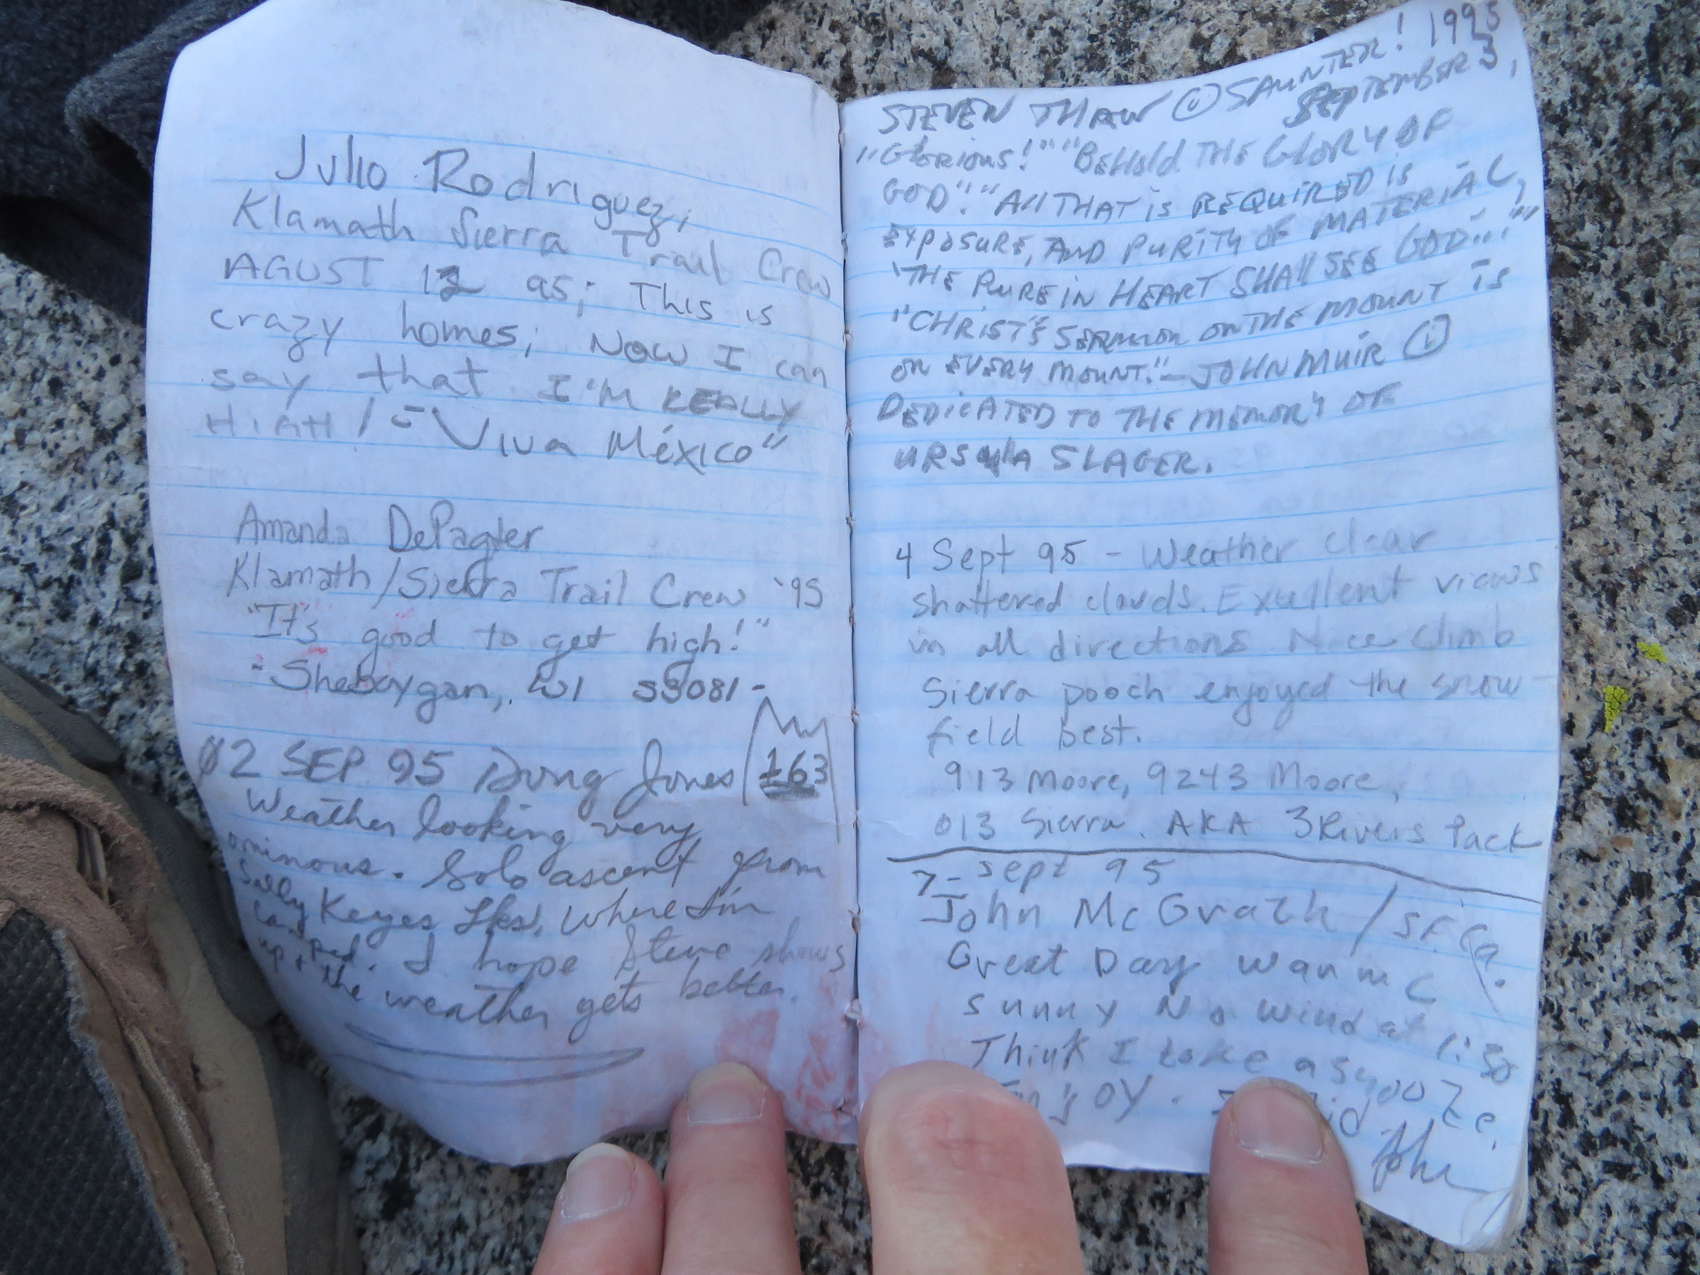 Julio Rodriguez,
Klamath Sierra Trail Crew
AGUST 12 95; This is
crazy homes; NOW I can
say that I'M REALLY
HIGH! - "Viva México"
Amanda DePagter
Klamath/Sierra Trail Crew '95
"It's good to get high!"
- Sheboygan, WI 53081 -
02 SEP 95 Doug Jones 163
Weather looking very
ominous. Solo ascent from
Sally Keyes Lks, where I'm
camped. I hope Steve shows
up & the weather gets better.
STEVEN THAW SAUNTER! 1995
SEPTEMBER 3,
"Glorious!" "BEHOLD THE GLORY OF
GOD"! "All THAT is REQUIRED is
EXPOSURE, AND PURITY OF MATERIAL,
'THE PURE IN HEART SHALL SEE GOD...'"
"CHRIST'S SERMON ON THE MOUNT IS
ON EVERY MOUNT." - JOHN MUIR
DEDICATED TO THE MEMORY OF
URSULA SLAGER.
4 Sept 95 - Weather clear
shattered clouds. Excellent views
in all directions Nice climb
Sierra pooch enjoyed the snow
field best.
913 Moore, 9243 Moore,
013 Sierra. AKA 3Rivers Pack
7- Sept 95
John McGrath / S.F. Ca.
Great Day warm
sunny No wind at 1:30
Think I take a snooze
Enjoy. I did.
John